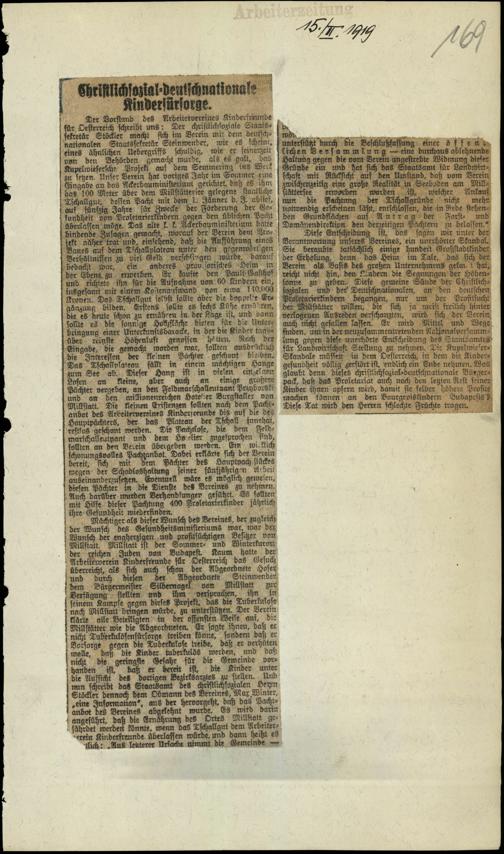 Arbeiterzeitung
15./III. 1919
169
Christlichsozial-deutschnationale
Kinderfürsorge.
Der Vorstand des Arbeitervereines Kinderfreunde
für Oesterreich schreibt uns: Der christlichsoziale Staats-
sekretär Stöckler macht sich im Verein mit dem deutsch-
nationalen Staatssekretär Steinwender, wie es scheint,
eines ähnlichen Uebergriffs schuldig, wie er seinerzeit
von den Behörden gemacht wurde, als es galt, das
Kupelwiesersche Projekt auf dem Semmering ins Werk
zu setzen. Unser Verein hat voriges Jahr im Sommer eine
Eingabe an das Ackerbauministerium gerichtet, daß es ihm
das 100 Meter über dem Millstättersee gelegene staatliche
Tschallgut, dessen Pacht mit dem 1. Jänner d. J. ablief,
auf fünfzig Jahre für Zwecke der Förderung der Ge-
sundheit von Proletarierkindern gegen den üblichen Pacht
überlassen möge. Das alte k. k. Ackerbauministerium hatte
bindende Zusagen gemacht, worauf der Verein dem Pro-
jekt näher trat und, einsehend, daß die Aufführung eines
Baues auf dem Tschallplateau unter den gegenwärtigen
Verhältnissen zu viel Geld verschlingen würde, darauf
bedacht war, ein anderes provisorisches Heim in
der Ebene zu erwerben. Er kaufte den Pauli-Gasthof
und richtete ihn für die Aufnahme von 60 Kindern ein,
insgesamt mit einem Kostenaufwand von etwa 110.000
Kronen. Das Tschallgut selbst sollte aber die doppelte Er-
gänzung bilden. Erstens sollte es sechs Kühe ernähren,
die es heute schon zu ernähren in der Lage ist, und dann
sollte es die sonnige Hochfläche bieten für die Unter-
bringung einer Unterkunftsbarack, in der die Kinder tags-
über reinste Höhenluft genießen sollten. Nach der
Eingabe, die gemacht wurde, sollten ausdrücklich
die Interessen der kleinen Pächter geschont bleiben.
Das Tschallplateau fällt in einem mächtigen Hange
zum See ab. Dieser Hang ist in vielen einzelnen
Losen an kleine, aber auch an einige größere
Pächter vergeben, an den Feldmarschalleutnant
und an den millionenreichen Hotelier Burgstaller von
Millstatt. Die kleinen Existenzen sollten nach dem Pacht-
anbot des Arbeitervereines Kinderfreunde bis auf die des
Hauptpächters, der das Plateau der Tschall innehat,
restlos geschont werden. Die Pachtlose, die dem Feld-
marschalleutnant und dem Hotelier zugesprochen sind,
sollten an den Verein übergeben werden. Ein wirklich
schonungsvolles Pachtanbot. Dabei erklärte sich der Verein
bereit, sich mit dem Pächter des Hauptpachtstückes
wegen der Schadloshaltung seiner fünfjährigen Arbeit
auseinanderzusetzen. Eventuell wäre es möglich gewesen,
diesen Pächter in die Dienste des Vereines zu nehmen.
Auch darüber wurden Verhandlungen geführt. Es sollten
mit Hilfe dieser Pachtung 400 Proletarierkinder jährlich
ihre Gesundheit wiederfinden.
Mächtiger als dieser Wunsch des Vereines, der zugleich
der Wunsch des Gesundheitsministeriums war, war der
Wunsch der engherzigen und profitsüchtigen Besitzer von
Millstatt. Millstatt ist der Sommer- und Winterkurort
der reichen Juden von Budapest. Kaum hatte der
Arbeiterverein Kinderfreunde für Oesterreich das Gesuch
überreicht, als sich auch schon der Abgeordnete Hofer
und durch diesen der Abgeordnete Steinwender
dem Bürgermeister Silbernagel von Millstatt zur
Verfügung stellten und ihm versprachen, ihn in
seinem Kampfe gegen dieses Projekt, das die Tuberkulose
nach Millstatt bringen würde, zu unterstützen. Der Verein
klärte alle Beteiligten in der offensten Weise auf, die
Millstätter wie die Abgeordneten. Er sagte ihnen, daß er
nicht Tuberkulösenfürsorge treiben könne, sondern daß er
Vorsorge gegen die Tuberkulose treibe, daß er verhüten
wolle, daß die Kinder tuberkulös werden, und daß
nicht die geringste Gefahr für die Gemeinde vor-
handen ist, daß er bereit ist, die Kinder unter
die Aufsicht des dortigen Bezirksarztes zu stellen. Und
nun schreibt das Staatsamt des christlichsozialen Herrn
Stöckler dennoch dem Obmann des Vereines, Max Winter,
„eine Information“, aus der hervorgeht, daß das Pacht-
anbot des Vereines abgelehnt wurde. Es wird darin
angeführt, daß die Ernährung des Ortes Millstatt ge-
fährdet werden könnte, wenn das Tschallgut dem Arbeiter-
verein Kinderfreunde überlassen würde, und dann heißt es
„Aus letzterer Ursache nimmt die Gemeinde —
unterstützt durch die Beschlußfassung einer öffent-
lichen Versammlung — eine durchaus ablehnende
Haltung gegen die vom Verein angestrebte Widmung dieser
Gründe ein und hat sich das Staatsamt für Landwirt-
schaft mit Rücksicht auf den Umstand, daß vom Verein
zwischenzeitig eine große Realität in Seeboden am Mill-
stättersee erworben worden ist, welcher Ankauf
nun die Pachtung der Tschallgründe nicht mehr
notwendig erscheinen läßt, entschlossen, die in Rede stehen-
den Grundflächen auf Antrag der Forst- und
Domänendirektion den derzeitigen Pächtern zu belassen.“
Diese Entscheidung ist, das sagen wir unter der
Verantwortung unseres Vereines, ein unerhörter Skandal.
Sie beraubte tatsächlich einige hundert Großstadtkinder
der Erholung, denn das Heim im Tale, das sich der
Verein als Basis des großen Unternehmens gekauft hat,
reicht nicht hin, den Kindern die Segnungen der Höhen-
sonne zu geben. Diese gemeine Sünde der Christlich-
sozialen und der Deutschnationalen, an den deutschen
Proletarierkindern begangen, nur um der Profitsucht
der Millstätter willen, die sich zu weit freilich hinter
verlogenen Ausreden verschanzten, wird sich der Verein
auch nicht gefallen lassen. Er wird Mittel und Wege
finden, um in der neu zusammentretenden Nationalversamm-
lung gegen diese unerhörte Entscheidung des Staatsamtes
für Landwirtschaft Stellung zu nehmen. Die Kupelwieser-
Skandale müssen in dem Oesterreich, in dem die Kinder-
gesundheit völlig gefährdet ist, endlich ein Ende nehmen. Was
glaubt denn dieses christlichsozial-deutschnationale
pack, daß das Proletariat auch noch den letzten Rest seiner
Kinder ihnen opfern wird, damit sie selber schöne Profite
machen können an den Bourgeoiskindern Budapests?
Diese Tat wird den Herren schlechte Früchte tragen.